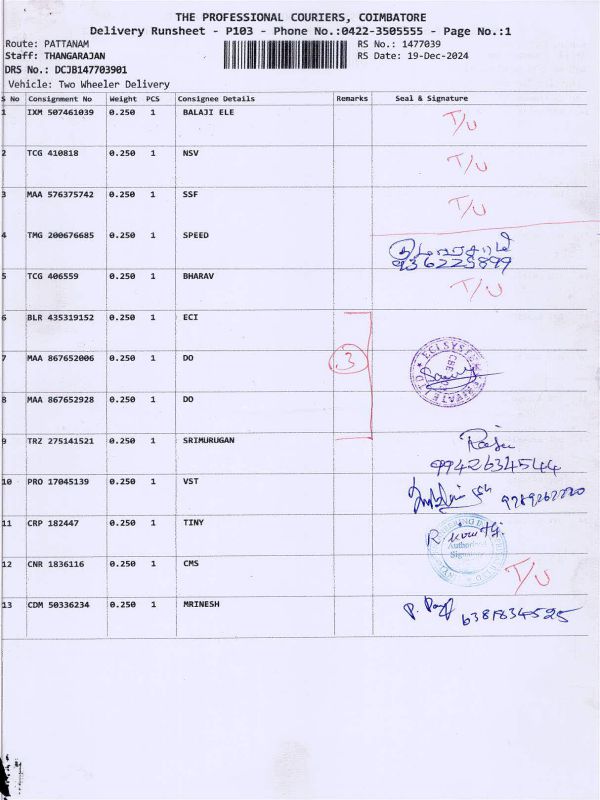 THE PROFESSIONAL COURIERS, COIMBATORE
Delivery Runsheet - P103 - Phone No.:0422-3505555 - Page No.:1
Route: PATTANAM
RS No.: 1477039
Staff: THANGARAJAN
RS Date: 19-Dec-2024
DRS No.: DCJB147703901
Vehicle: Two Wheeler Delivery
S No Consignment No Weight PCS Consignee Details Remarks Seal & Signature
1 IXM 507461039 0.250 1 BALAJI ELE T/U
2 TCG 410818 0.250 1 NSV T/U
3 MAA 576375742 0.250 1 SSF T/U
4 TMG 200676685 0.250 1 SPEED
936225899
5 TCG 406559 0.250 1 BHARAV T/U
6 BLR 435319152 0.250 1 ECI
7 MAA 867652006 0.250 1 DO 3
8 MAA 867652928 0.250 1 DO
9 TRZ 275141521 0.250 1 SRIMURUGAN
9942634544
10 PRO 17045139 0.250 1 VST
11 CRP 182447 0.250 1 TINY
Authorised
12 CNR 1836116 0.250 1 CMS T/U
13 CDM 50336234 0.250 1 MRINESH 6381834525